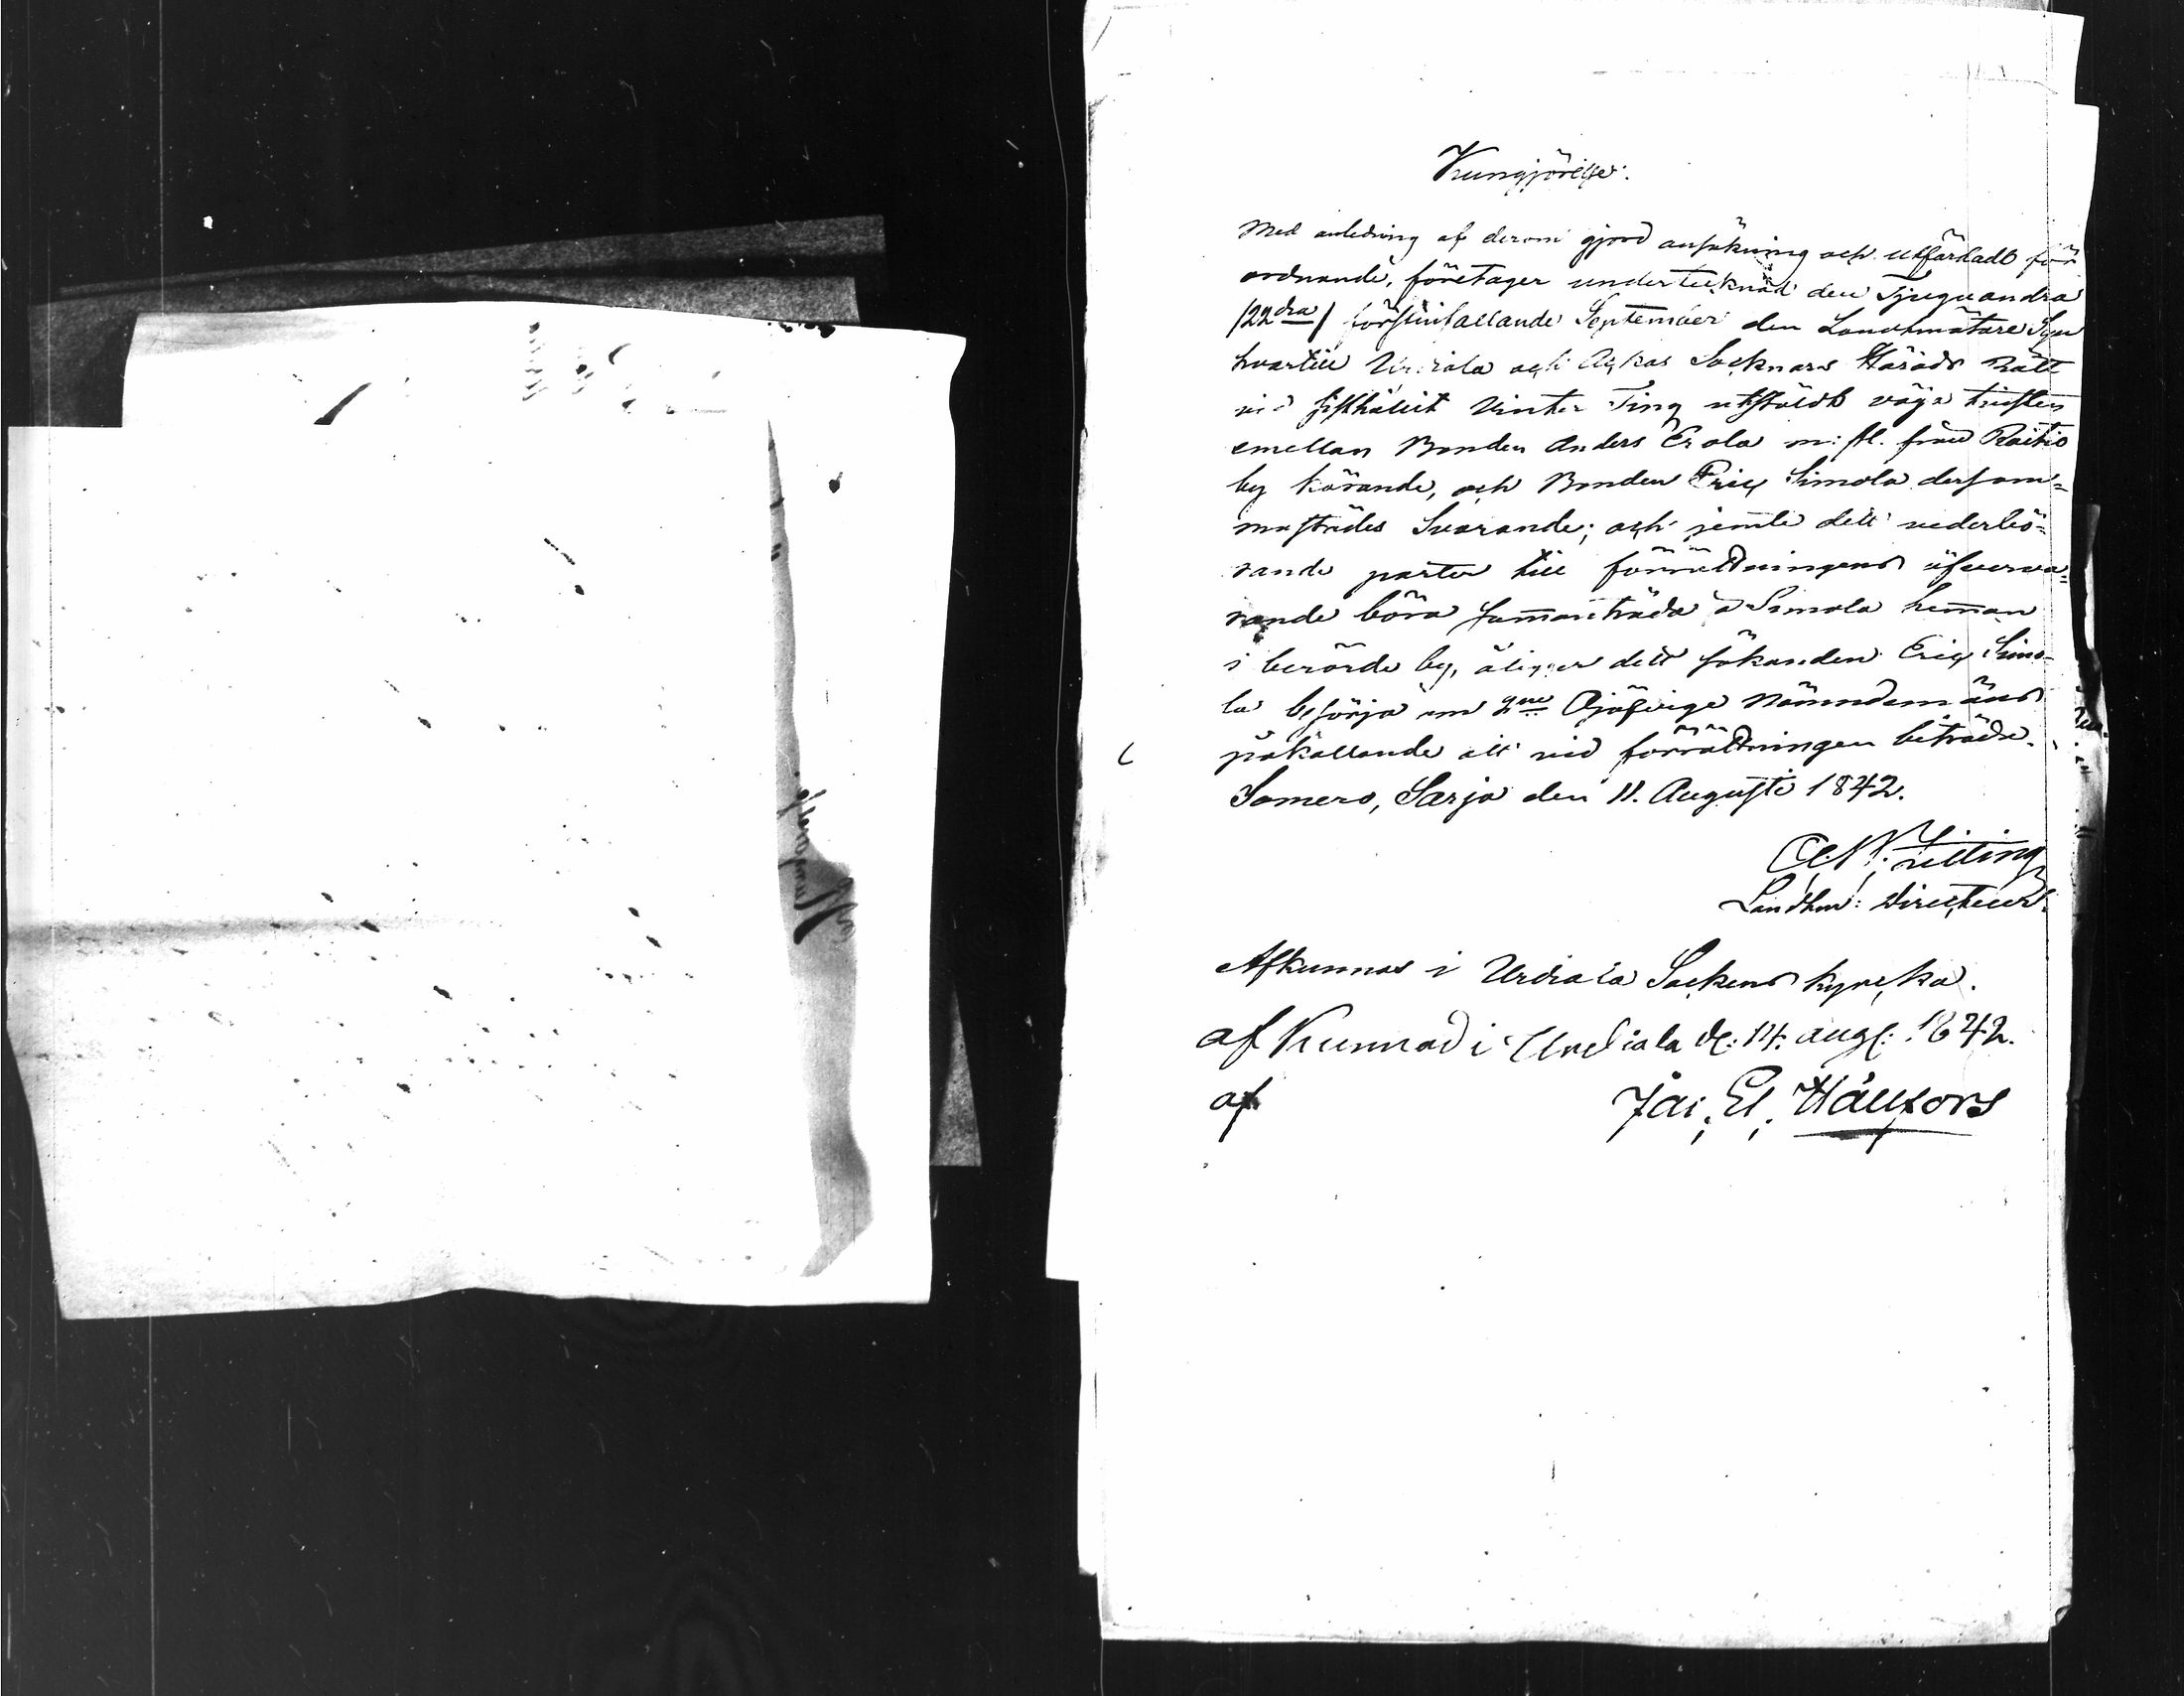 Kungjörelse.
Med anledning af derom gjord ansökning och utfärdadt för
ordnande, företager undertecknad den Tjuguandra
/22dra/ förstinfallande September den Landtmätare Syn
hvartill Urdiala och Ackas Socknars Härads Rätt
vid sisthållit Vinter Ting utstäldt väga tvisten
emellan Bonden Anders Erola m: fl. från Raitio
by kärande, och Bonden Eric Simola dersam=
mastädes Svarande; och jemte det vederbö=
rande parter till förrättningens öfverva=
rande böra sammanträda å Simola hemman
i berörde by, åligger det sökanden Eric Simo-
la besörja om 2ne Ojäfvige Nämndemäns
påkallande att vid förrättningen biträda.
Somero, Sarja den 11. Augusti 1842.
Landtm: Directeur.
Afkunnas i Urdiala Sockens kyrcka.
af Kunnad i Urdiala d: 14: aug: 1842.
af